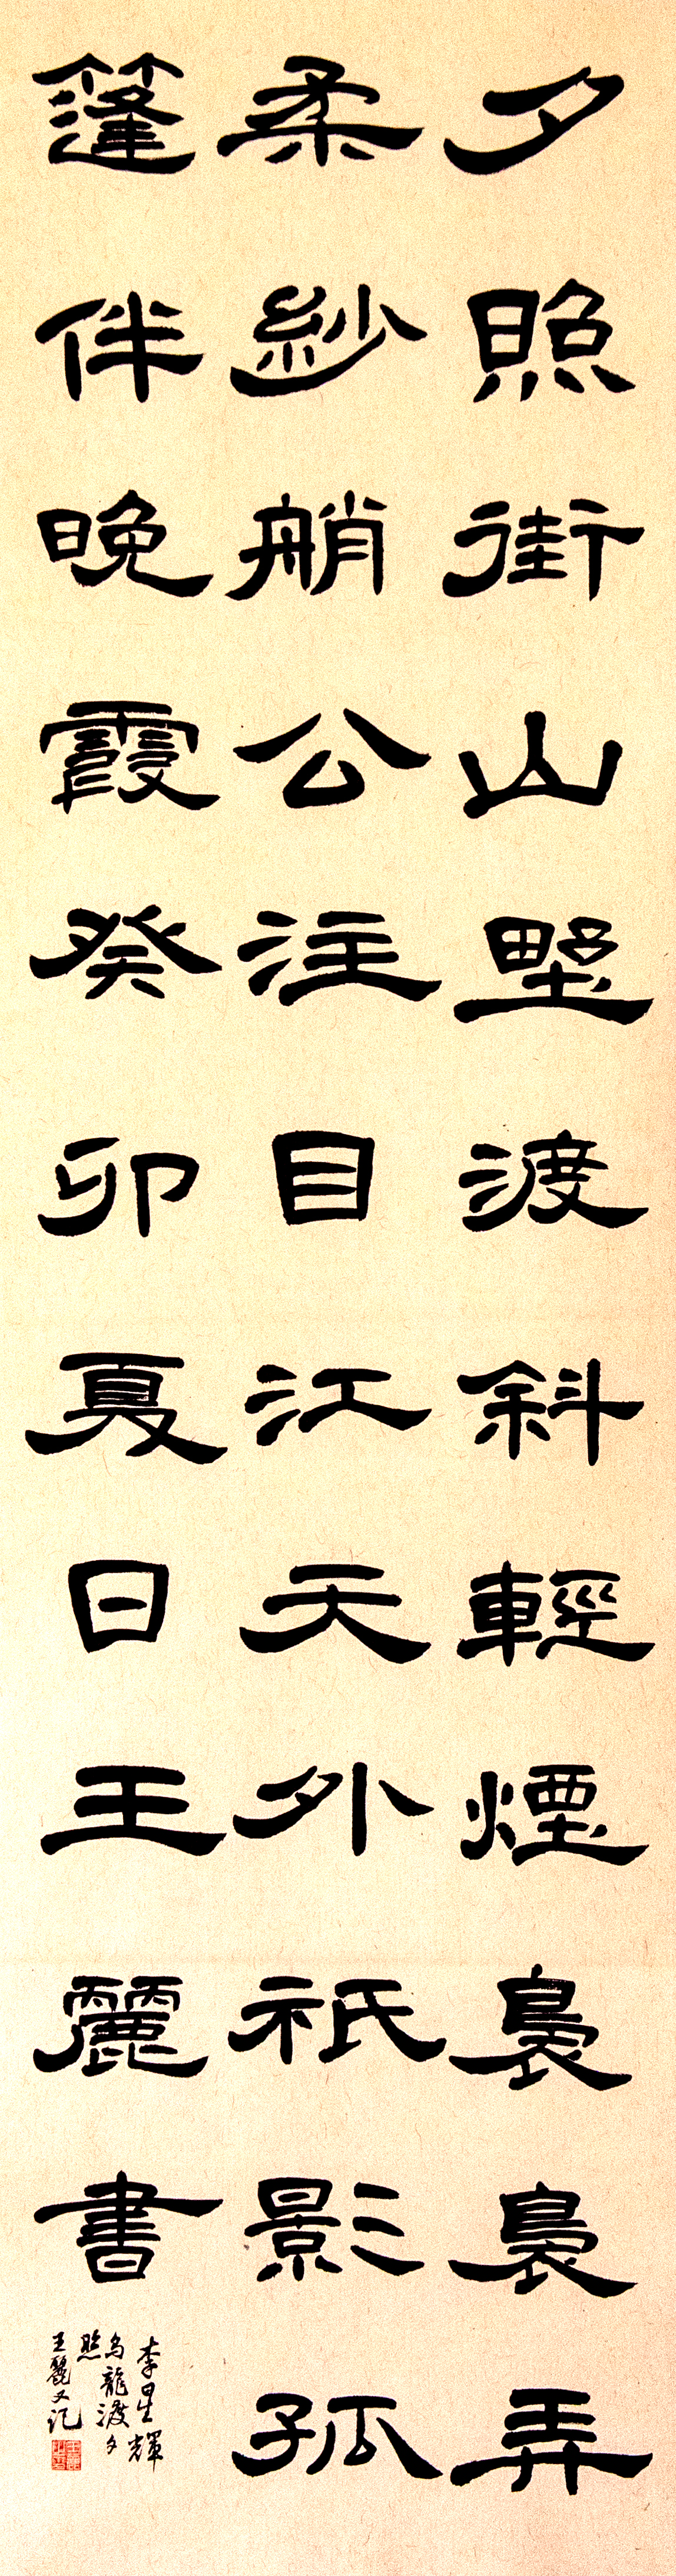 夕照街山墅渡斜輕煙裊裊弄
柔紗艄公注目江天外祇影孤
篷伴晚霞癸卯夏日王麗書
李星輝
烏龍渡夕
照
王麗又記